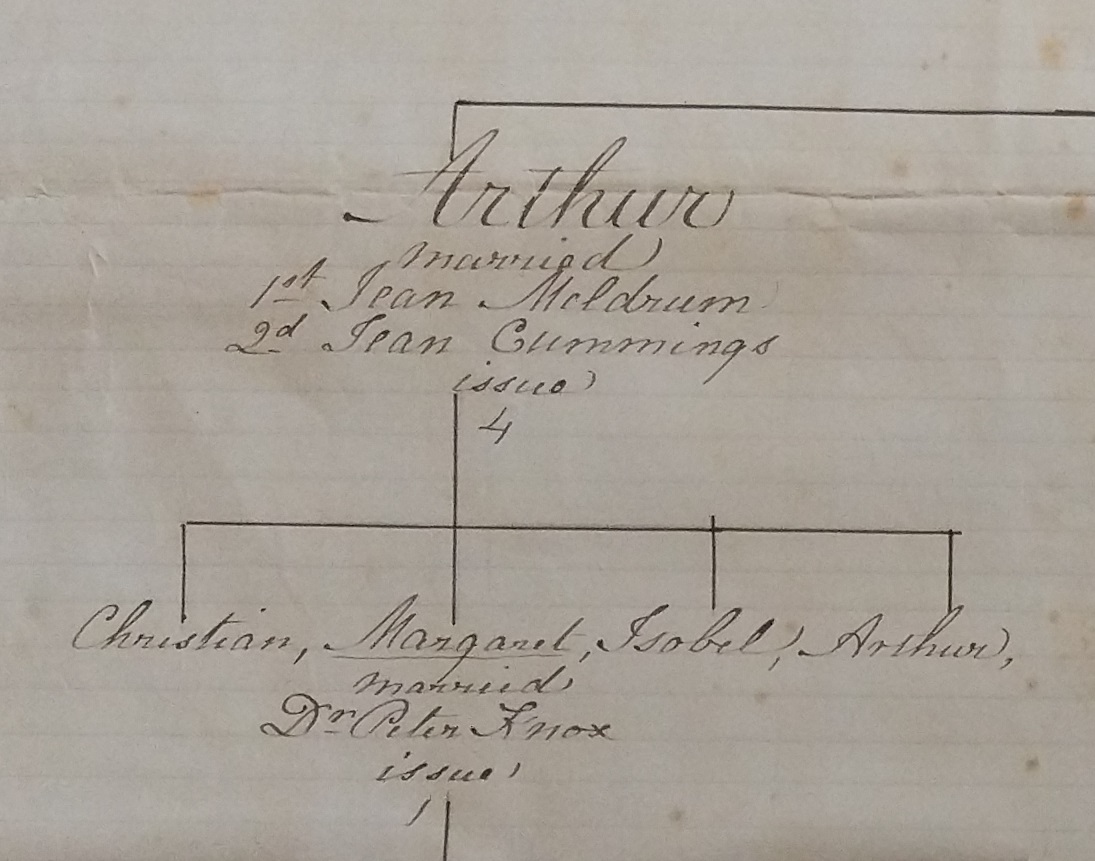 Arthur
married
1st Jean Meldrum
2d Jean Cummings
issue
4
Christian, Margaret, Isobel, Arthur,
married
Dr Peter Knox
issue
1